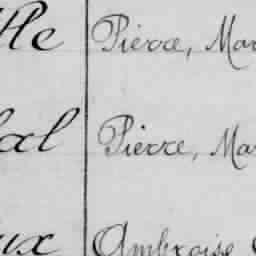 lle Pierre, Mar
al Pierre, Mar
ux Ambroise